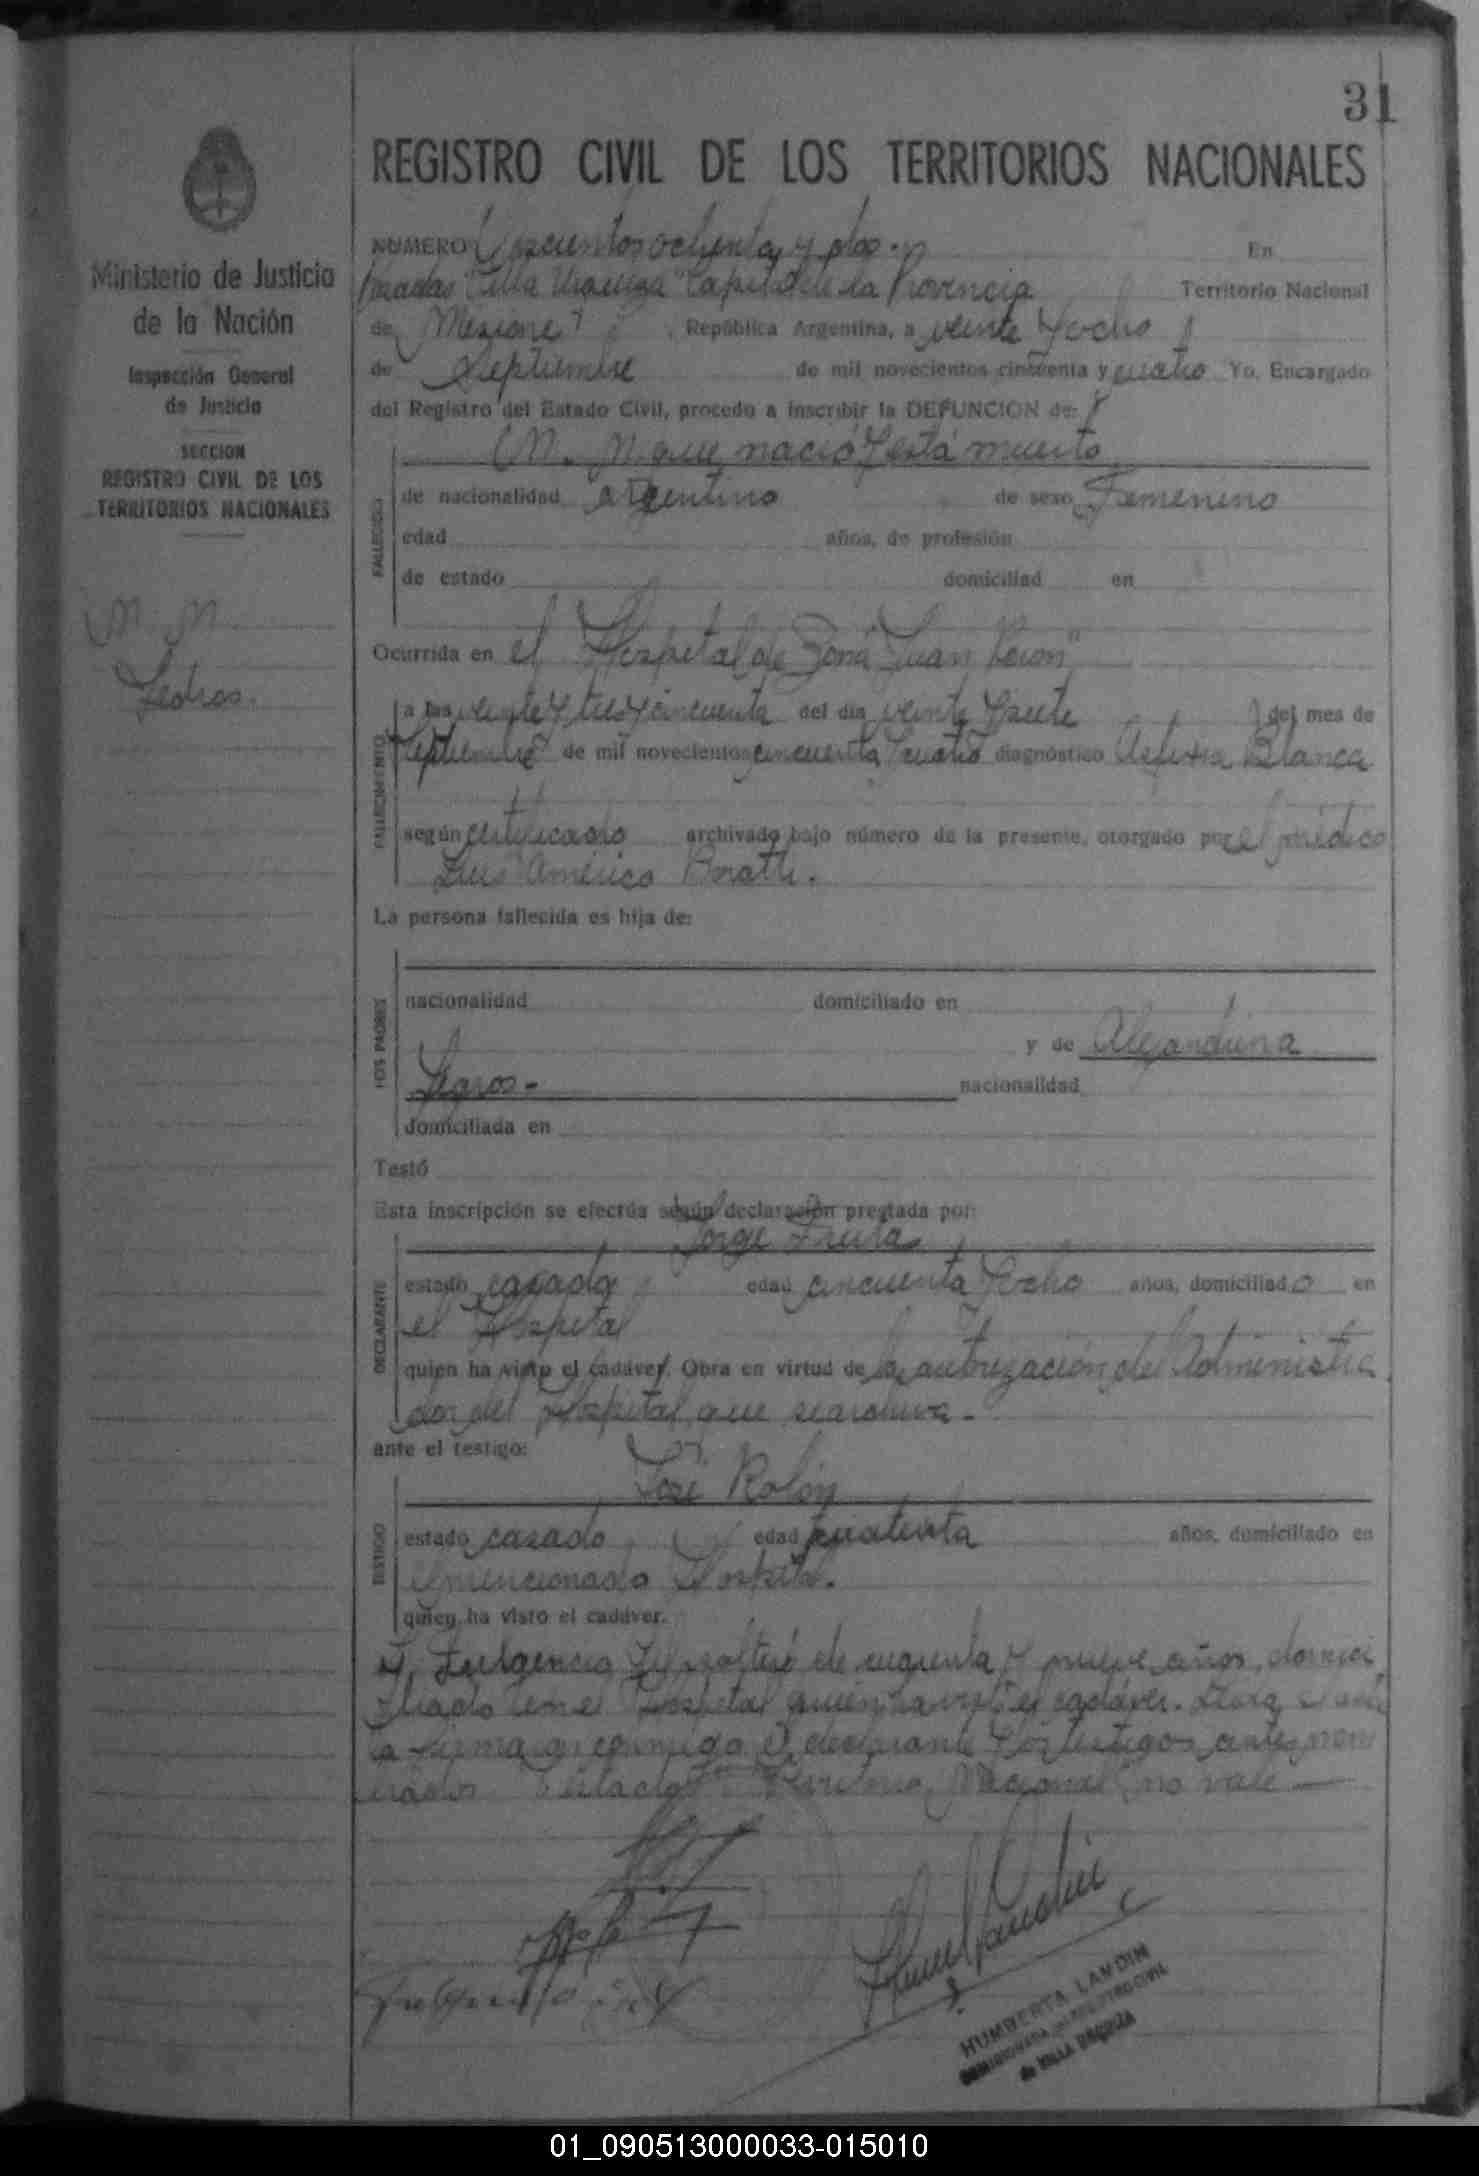 31
REGISTRO CIVIL DE LOS TERRITORIOS NACIONALES
Ministerio de Justicia
de la Nación
Inspección General
de Justicia
SECCION
REGISTRO CIVIL DE LOS
TERRITORIOS NACIONALES
N. N.
NUMERO ochenta y dos. En
Posadas "Villa Urquiza" Capital de la Provincia Territorio Nacional
de Misiones República Argentina, a veinte y ocho
de Septiembre de mil novecientos cincuenta y cuatro Yo, Encargado
del Registro del Estado Civil, procedo a inscribir la DEFUNCION de:
N. N. que nació y está muerto
FALLECIDO
de nacionalidad argentino de sexo Femenino
edad años, de profesión
de estado domiciliad en
Ocurrida en el Hospital de Zona "Juan Perón"
FALLECIMIENTO
a las veinte y tres y cincuenta del día veinte y siete del mes de
Septiembre de mil novecientos cincuenta y cuatro diagnóstico Asfixia Blanca
según certificado archivado bajo número de la presente, otorgado por el médico
Luis Américo
La persona fallecida es hija de:
LOS PADRES
nacionalidad domiciliado en
y de Alejandrina
nacionalidad
domiciliada en
Testó
Esta inscripción se efectúa según declaración prestada por:
Jorge
DECLARANTE
estado casado edad cincuenta y ocho años, domiciliado en
el Hospital
quien ha visto el cadáver. Obra en virtud de la autorización del Administra
dor del Hospital que se archiva.-
ante el testigo:
José Rolón
TESTIGO
estado casado edad cuarenta años, domiciliado en
el mencionado Hospital.
quien ha visto el cadáver.
y Fulgencio soltero de cuarenta y nueve años, domici
liado en el Hospital quien ha visto el cadáver. Leída el acta
la firma conmigo el declarante y los testigos antes men
cionados. Testado "Territorio Nacional" no vale
HUMBERTA LANDIN
REGISTRO CIVIL
de VILLA URQUIZA
01_090513000033-015010